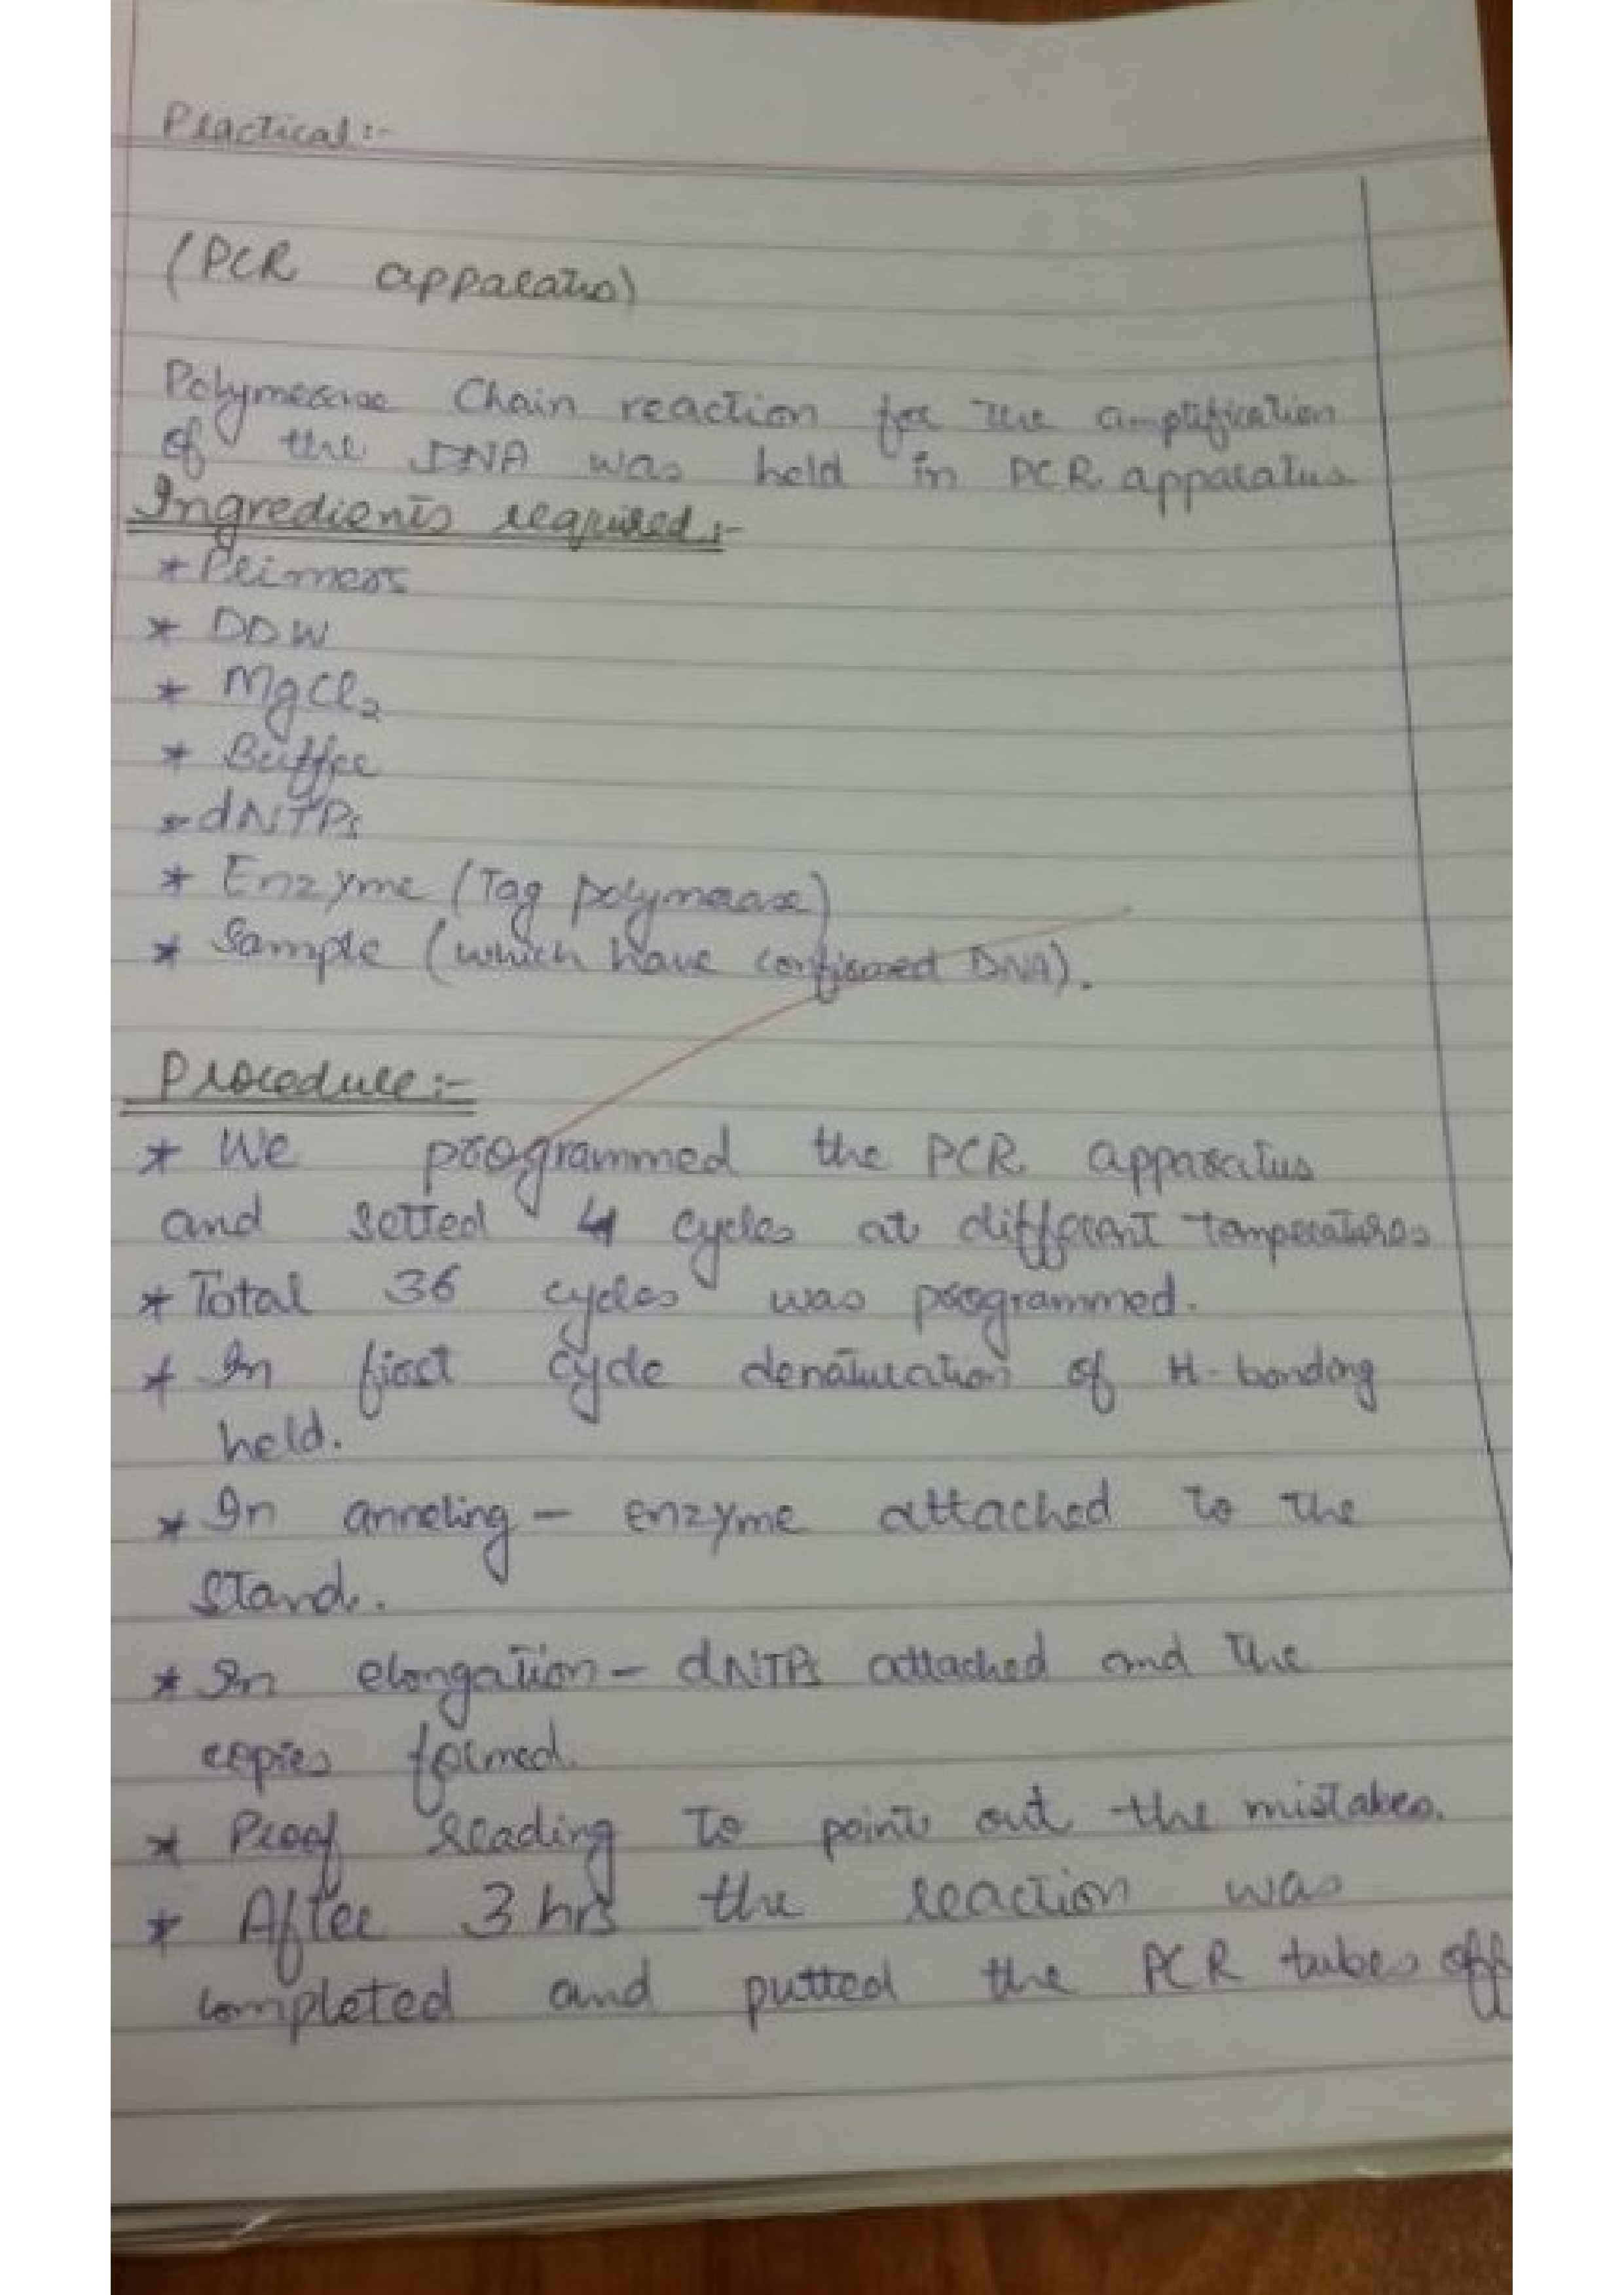 Practical :-
(PCR apparatus)
Polymerase Chain reaction for the amplification
of the DNA was held in PCR apparatus
Ingredients required :-
* Primers
* DDW
* MgCl₂
* Buffer
* dNTPs
* Enzyme (Taq polymerase)
* Sample (which have confirmed DNA).
Procedure :-
* We programmed the PCR apparatus
and setted 4 cycles at different temperatures
* Total 36 cycles was programmed.
* In first cycle denaturation of H-bonding
held.
* In anneling - enzyme attached to the
stand.
* In elongation - dNTPs attached and the
copies formed.
* Proof reading to point out the mistakes.
* After 3 hrs the reaction was
completed and putted the PCR tubes off